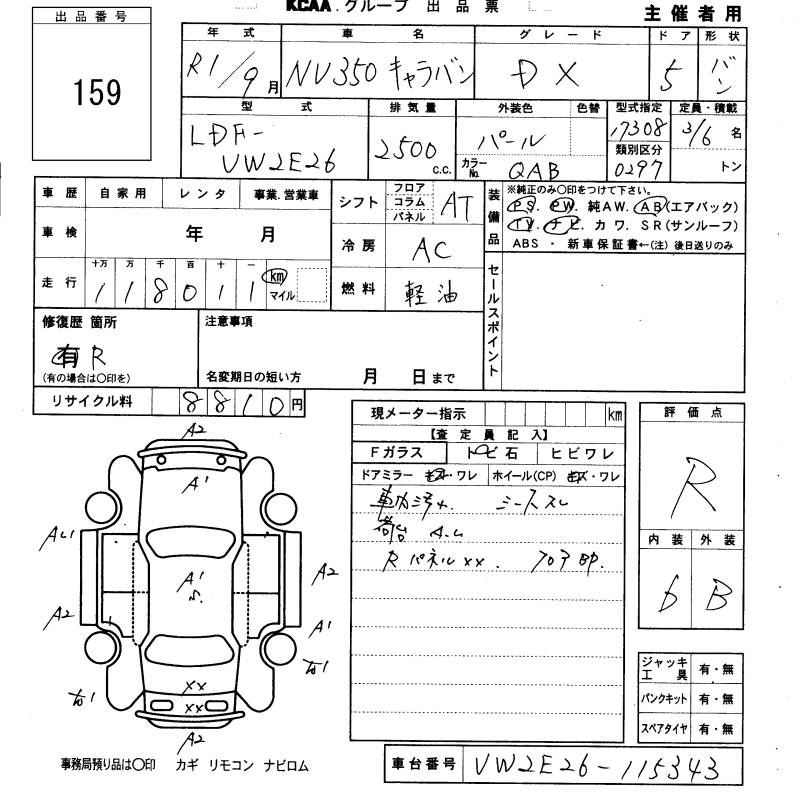 KCAA.グループ 出品票
主催者用
出品番号
159
年式 車名 グレード ドア 形状
R1/9月 NV350 キャラバン DX 5 バン
型式 排気量 外装色 色替 型式指定 定員・積載
LDF-VW2E26 2500 c.c. パール 17308 3/6 名
カラーNo. QAB 類別区分 0297 トン
車歴 自家用 レンタ 事業.営業車
車検 年 月
走行 十万 万 千 百 十 一
1 1 8 0 1 1 km マイル
シフト フロア コラム パネル AT
冷房 AC
燃料 軽油
装備品
※純正のみ〇印をつけて下さい。
PS. PW. 純AW. AB(エアバック)
TV. ナビ. カワ. SR(サンルーフ)
ABS ・ 新車保証書←(注) 後日送りのみ
セールスポイント
修復歴 箇所
有 R
(有の場合は〇印を)
注意事項
名変期日の短い方 月 日まで
リサイクル料 8 8 1 0 円
現メーター指示 km
【査定員記入】
Fガラス トビ石 ヒビワレ
ドアミラー キズ・ワレ ホイール(CP) キズ・ワレ
車内汚れ
荷台
Rパネルxx.
評価点
R
内装 外装
6 B
ジャッキ工具 有・無
パンクキット 有・無
スペアタイヤ 有・無
A2
A1
A2
A2
A1
A2
A1
xx
xx
A2
事務局預り品は〇印 カギ リモコン ナビロム
車台番号 VW2E26-115343